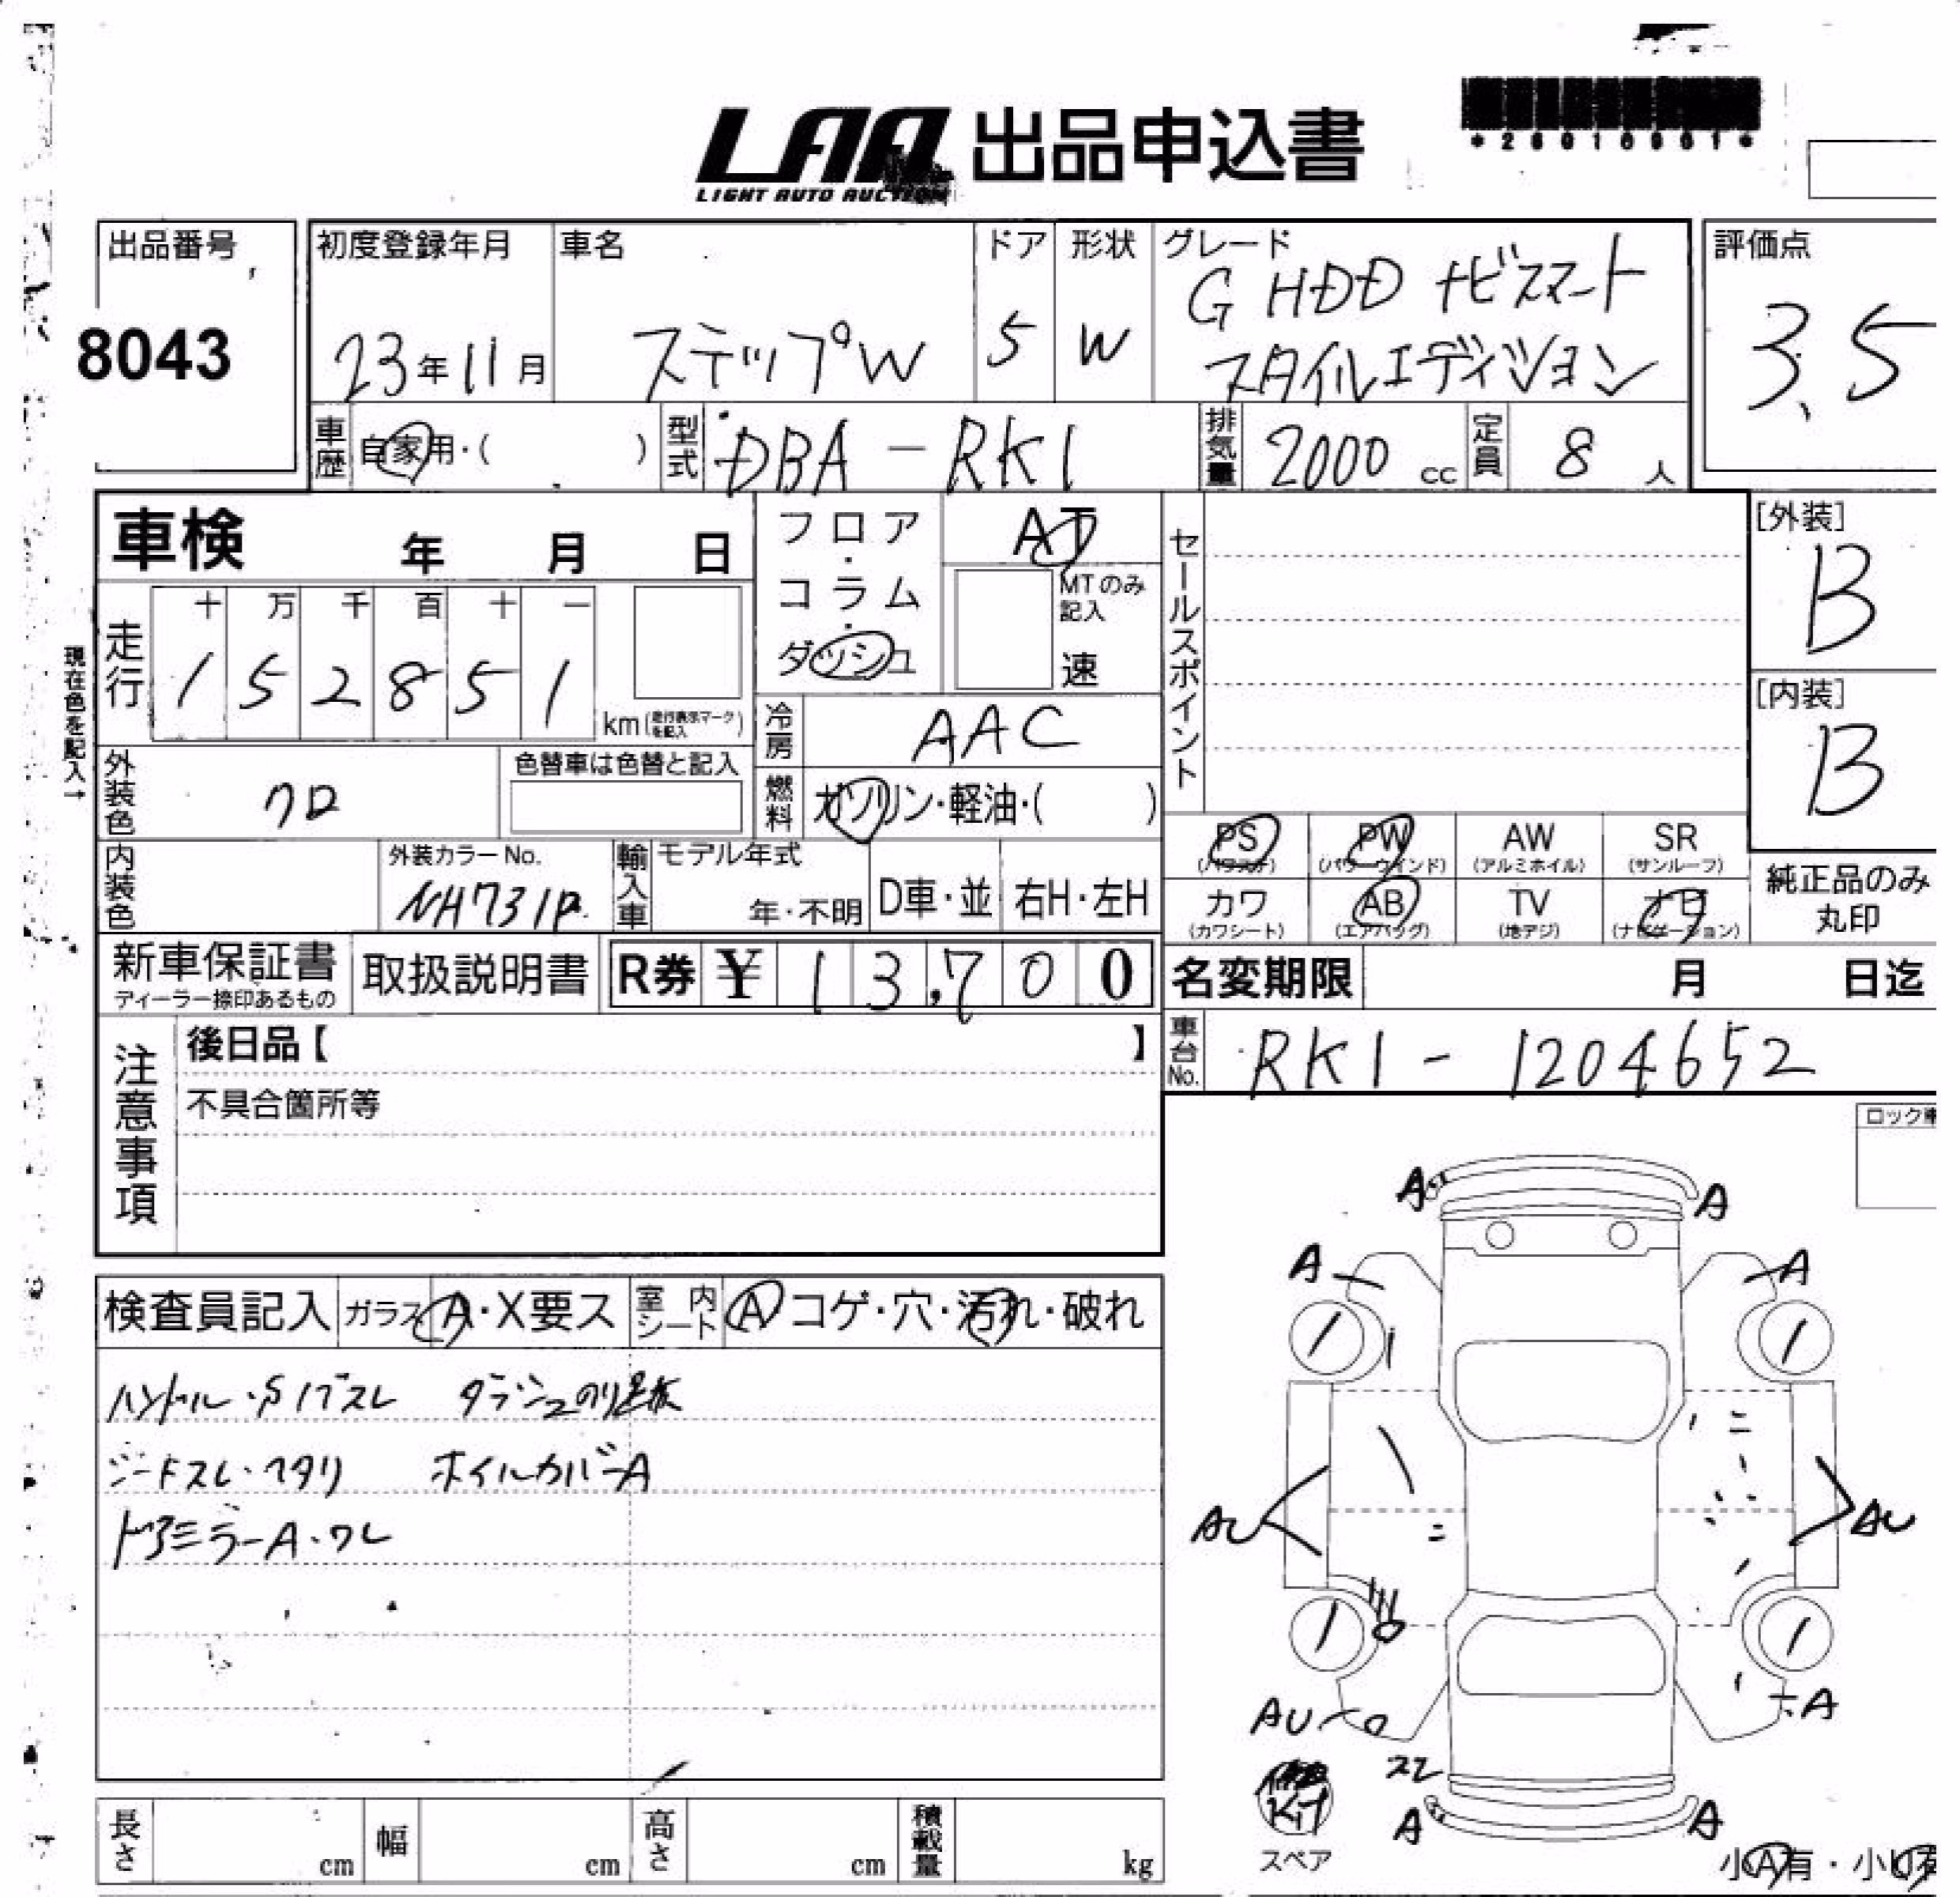 LAA 出品申込書
LIGHT AUTO AUCTION
出品番号
8043
初度登録年月
23年11月
車名
ステップW
ドア
5
形状
W
グレード
G HDD ナビスマート
スタイルエディション
評価点
3.5
車歴 自家用・( )
型式 DBA-RK1
排気量 2000 cc
定員 8 人
車検 年 月 日
フロア・コラム・ダッシュ
AT
MTのみ記入
速
セールスポイント
[外装]
B
[内装]
B
現在色を記入→
走行
十 万 千 百 十 一
1 5 2 8 5 1 km (走行表示マークを記入)
冷房 AAC
外装色 クロ
色替車は色替と記入
燃料 ガソリン・軽油・( )
内装色
外装カラーNo.
NH731P
輸入車
モデル年式
年・不明
D車・並
右H・左H
PS (パワステ)
PW (パワーウインド)
AW (アルミホイル)
SR (サンルーフ)
カワ (カワシート)
AB (エアバッグ)
TV (地デジ)
ナビ (ナビゲーション)
純正品のみ
丸印
新車保証書
ディーラー捺印あるもの
取扱説明書
R券 ¥ 13,700
名変期限 月 日迄
車台No. RK1-1204652
注意事項
後日品【 】
不具合箇所等
検査員記入
ガラス A・X要ス
室内シート A コゲ・穴・汚れ・破れ
ハンドル・S/ブスレ ダッシュのり跡
シートスレ・ヘタリ ホイルカバーA
ドアミラーA・ワレ
ロック車
A A
A A
AU AU
AU A
スレ
A A
Kit
スペア
小A有・小U有
長さ cm
幅 cm
高さ cm
積載量 kg